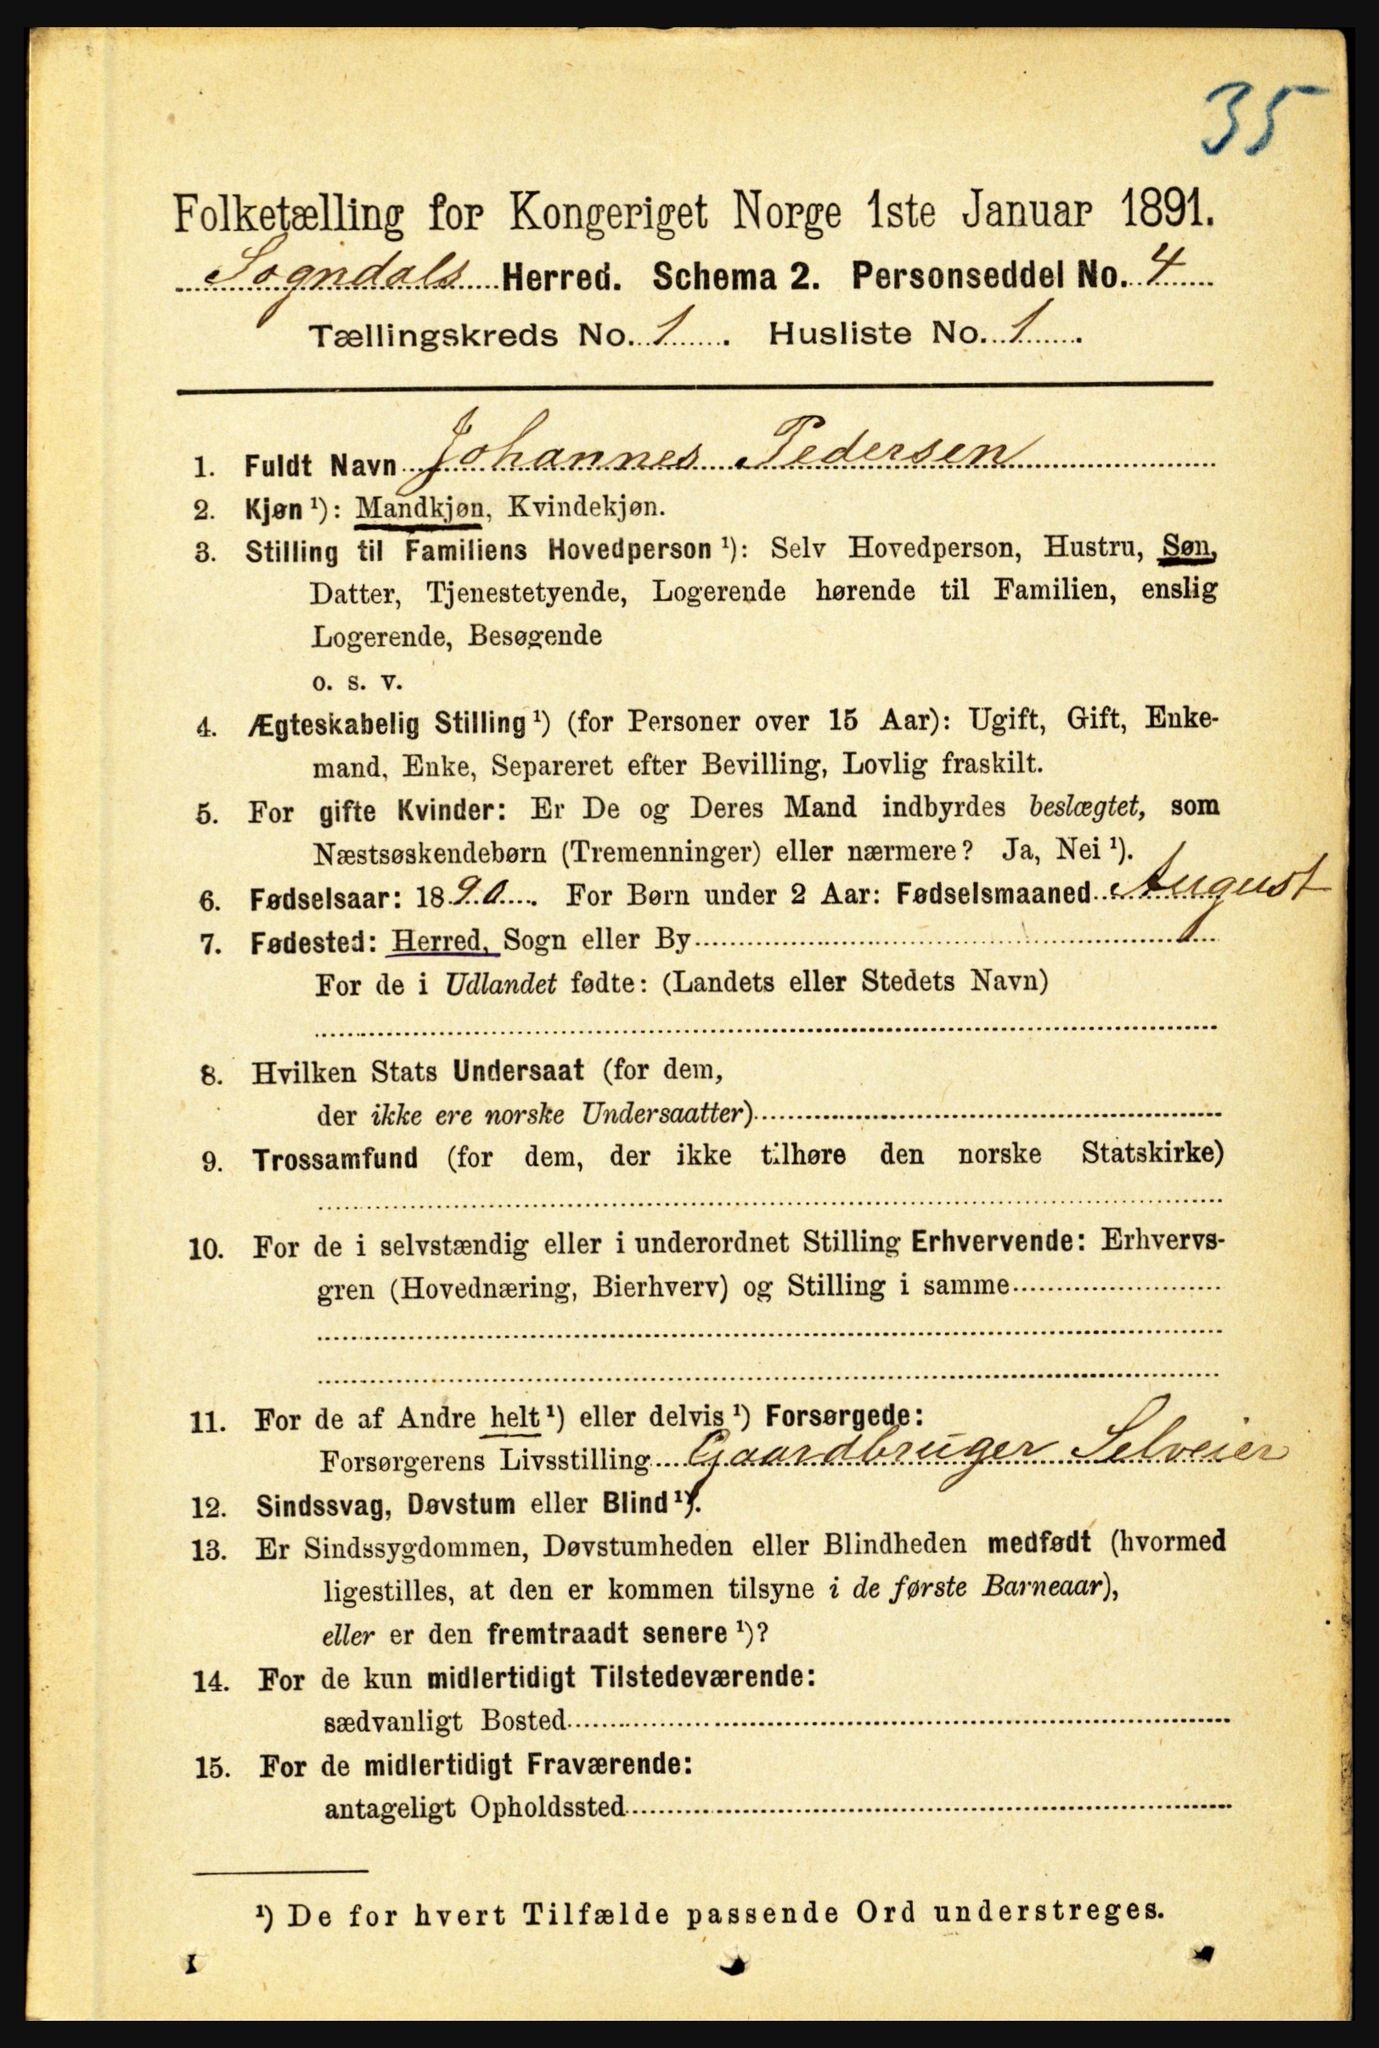 35
Folketælling for Kongeriget Norge 1ste Januar 1891.
Sogndals Herred. Schema 2. Personseddel No. 4
Tællingskreds No. 1. Husliste No. 1.
1. Fuldt Navn Johannes Pedersen
2. Kjøn ¹): Mandkjøn, Kvindekjøn.
3. Stilling til Familiens Hovedperson ¹): Selv Hovedperson, Hustru, Søn,
Datter, Tjenestetyende, Logerende hørende til Familien, enslig
Logerende, Besøgende
o. s. v.
4. Ægteskabelig Stilling ¹) (for Personer over 15 Aar): Ugift, Gift, Enke-
mand, Enke, Separeret efter Bevilling, Lovlig fraskilt.
5. For gifte Kvinder: Er De og Deres Mand indbyrdes beslægtet, som
Næstsøskendebørn (Tremenninger) eller nærmere? Ja, Nei ¹).
6. Fødselsaar: 1890. For Børn under 2 Aar: Fødselsmaaned August
7. Fødested: Herred, Sogn eller By
For de i Udlandet fødte: (Landets eller Stedets Navn)
8. Hvilken Stats Undersaat (for dem,
der ikke ere norske Undersaatter)
9. Trossamfund (for dem, der ikke tilhøre den norske Statskirke)
10. For de i selvstændig eller i underordnet Stilling Erhvervende: Erhvervs-
gren (Hovednæring, Bierhverv) og Stilling i samme
11. For de af Andre helt ¹) eller delvis ¹) Forsørgede:
Forsørgerens Livsstilling Gaardbruger Selveier
12. Sindssvag, Døvstum eller Blind ¹).
13. Er Sindssygdommen, Døvstumheden eller Blindheden medfødt (hvormed
ligestilles, at den er kommen tilsyne i de første Barneaar),
eller er den fremtraadt senere ¹)?
14. For de kun midlertidigt Tilstedeværende:
sædvanligt Bosted
15. For de midlertidigt Fraværende:
antageligt Opholdssted
¹) De for hvert Tilfælde passende Ord understreges.